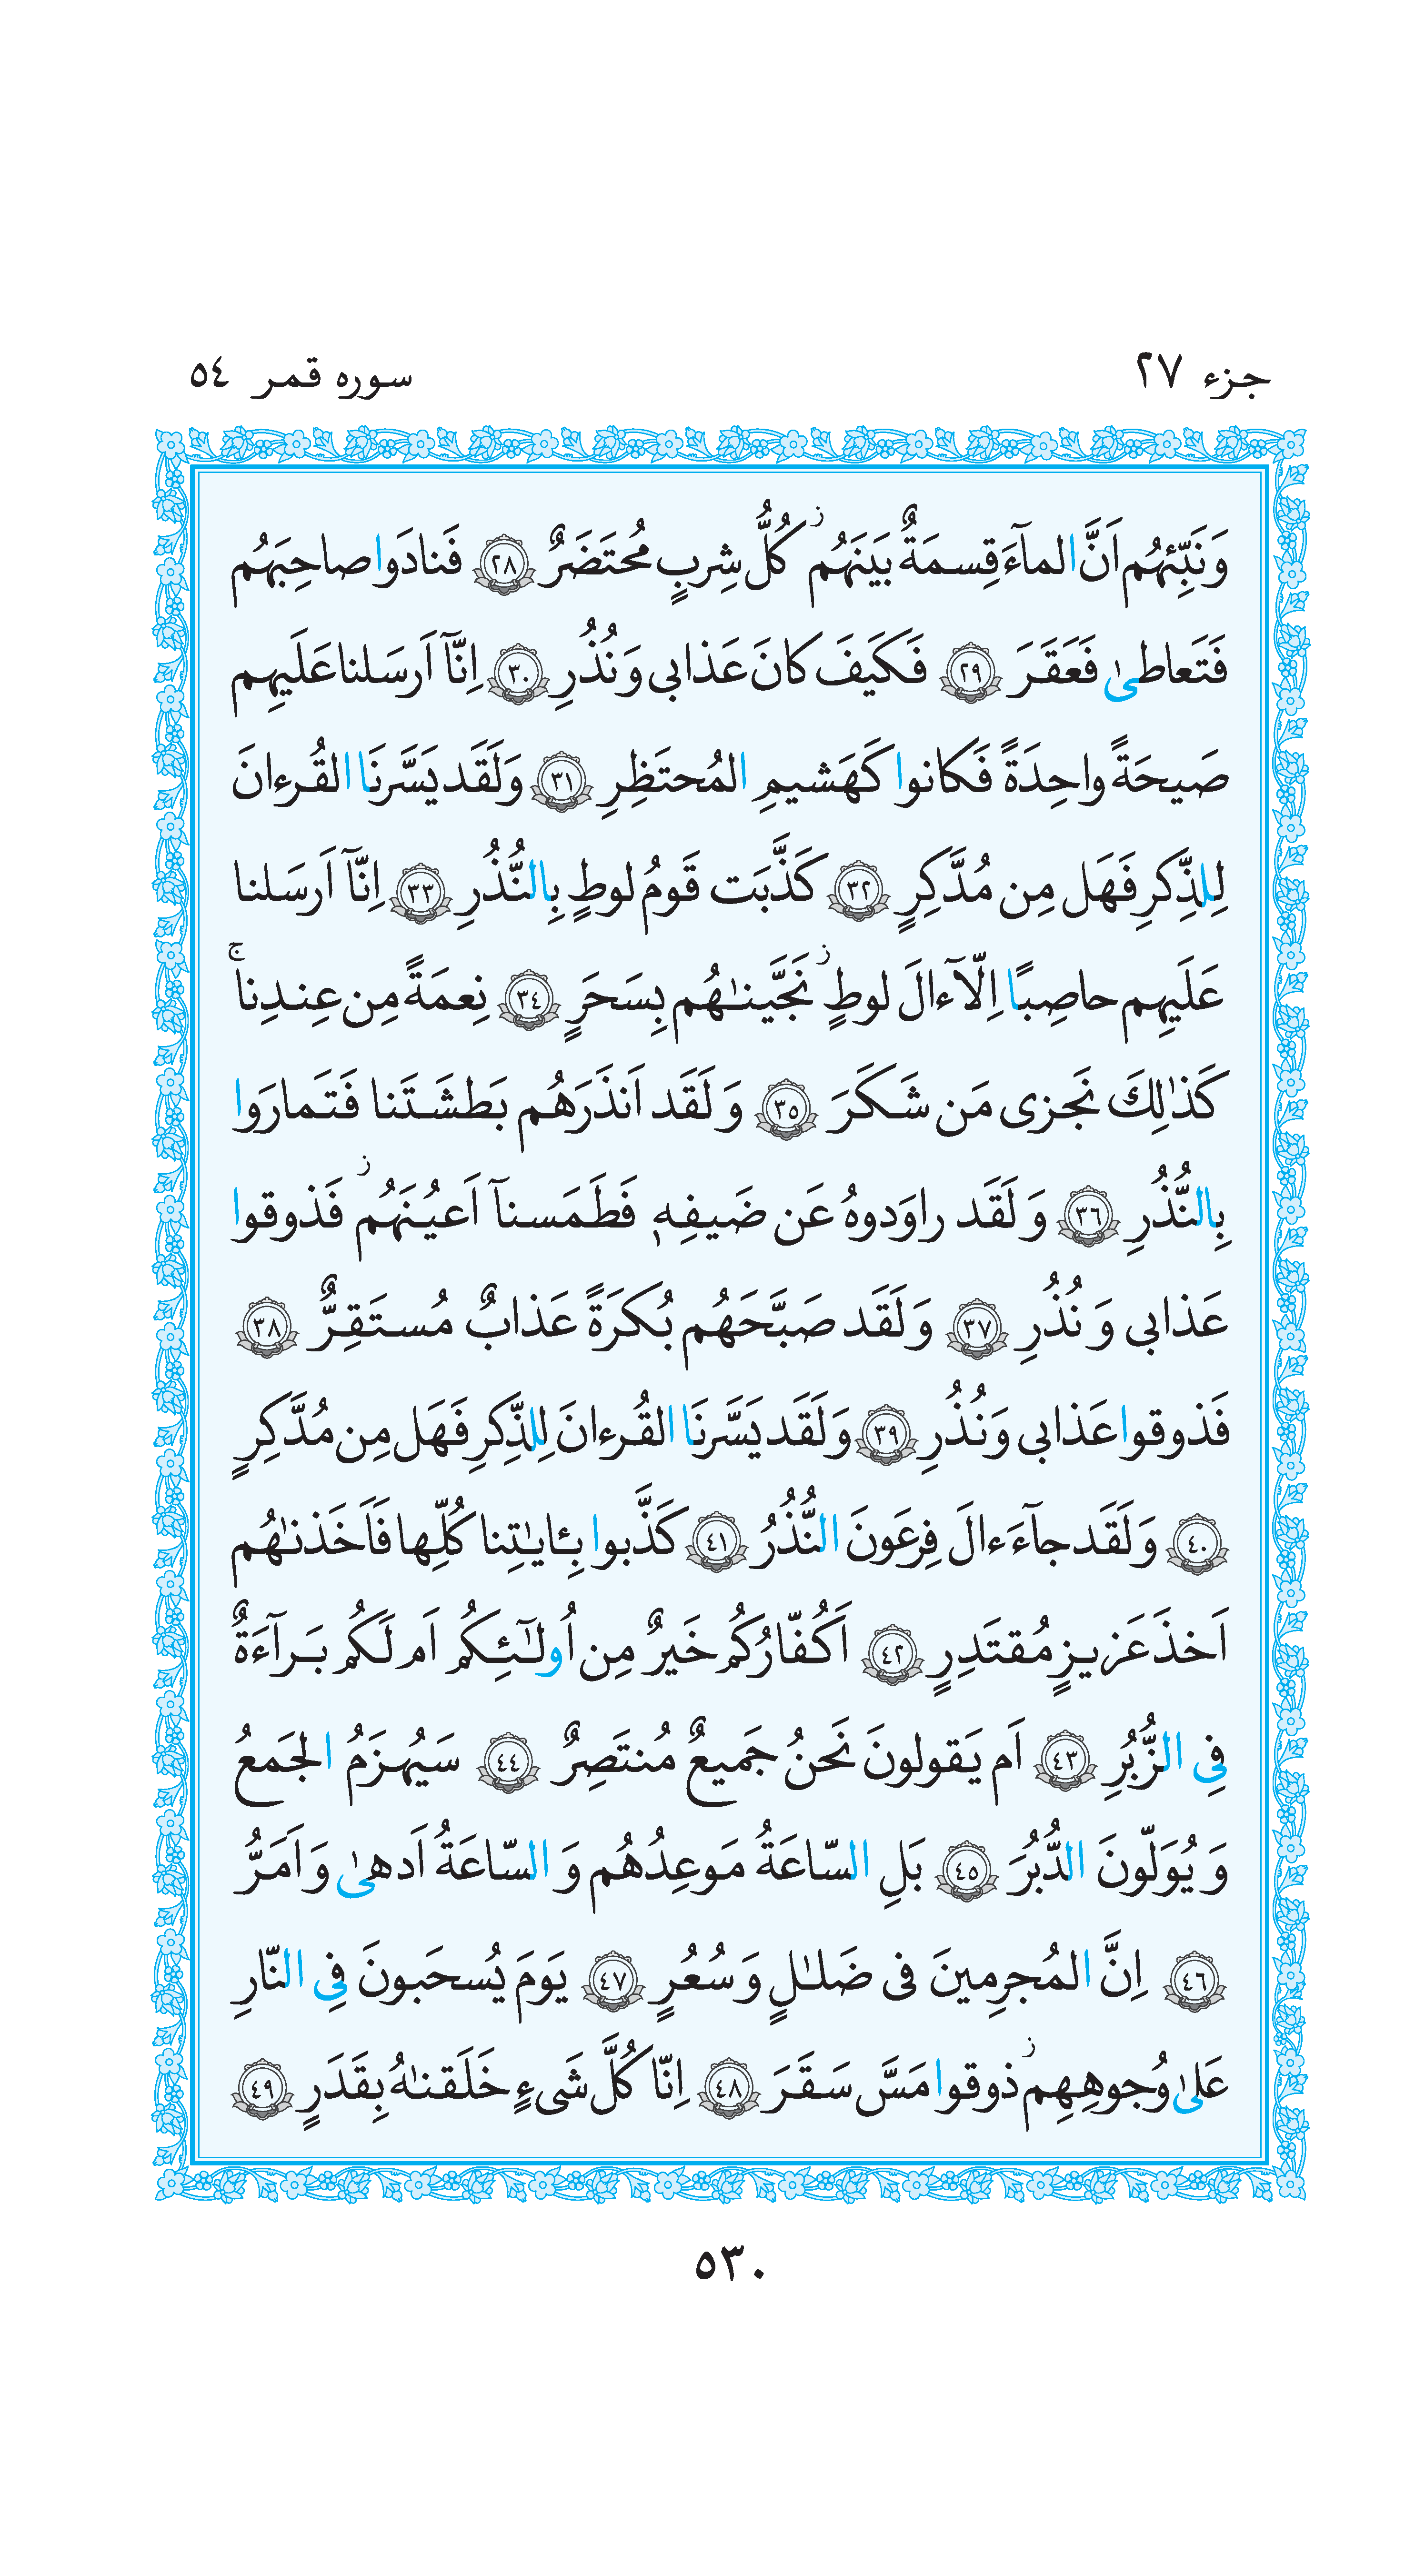 جزء ٢٧
سوره قمر ٥٤
وَنَبِّئهُم اَنَّ المآءَ قِسمَةٌ بَينَهُم ز كُلُّ شِربٍ مُحتَضَرٌ ٢٨ فَنادَوا صاحِبَهُم
فَتَعاطىٰ فَعَقَرَ ٢٩ فَكَيفَ كانَ عَذابى وَ نُذُرِ ٣٠ اِنَّآ اَرسَلنا عَلَيهِم
صَيحَةً واحِدَةً فَكانوا كَهَشيمِ المُحتَظِرِ ٣١ وَلَقَد يَسَّرنَا القُرءانَ
لِلذِّكرِ فَهَل مِن مُدَّكِرٍ ٣٢ كَذَّبَت قَومُ لوطٍ بِالنُّذُرِ ٣٣ اِنَّآ اَرسَلنا
عَلَيهِم حاصِبًا اِلّآ ءالَ لوطٍ ز نَجَّينـٰهُم بِسَحَرٍ ٣٤ نِعمَةً مِن عِندِنا ج
كَذٰلِكَ نَجزى مَن شَكَرَ ٣٥ وَ لَقَد اَنذَرَهُم بَطشَتَنا فَتَمارَوا
بِالنُّذُرِ ٣٦ وَ لَقَد راوَدوهُ عَن ضَيفِهٖ فَطَمَسنآ اَعيُنَهُم ز فَذوقوا
عَذابى وَ نُذُرِ ٣٧ وَ لَقَد صَبَّحَهُم بُكرَةً عَذابٌ مُستَقِرٌّ ٣٨
فَذوقوا عَذابى وَنُذُرِ ٣٩ وَلَقَد يَسَّرنَا القُرءانَ لِلذِّكرِ فَهَل مِن مُدَّكِرٍ
٤٠ وَلَقَد جآءَ ءالَ فِرعَونَ النُّذُرُ ٤١ كَذَّبوا بِـٔايـٰتِنا كُلِّها فَاَخَذنـٰهُم
اَخذَ عَزيزٍ مُقتَدِرٍ ٤٢ اَكُفّارُكُم خَيرٌ مِن اُولـٰٓئِكُم اَم لَكُم بَرآءَةٌ
فِى الزُّبُرِ ٤٣ اَم يَقولونَ نَحنُ جَميعٌ مُنتَصِرٌ ٤٤ سَيُهزَمُ الجَمعُ
وَ يُوَلّونَ الدُّبُرَ ٤٥ بَلِ السّاعَةُ مَوعِدُهُم وَ السّاعَةُ اَدهىٰ وَ اَمَرُّ
٤٦ اِنَّ المُجرِمينَ فى ضَلـٰلٍ وَ سُعُرٍ ٤٧ يَومَ يُسحَبونَ فِى النّارِ
عَلىٰ وُجوهِهِم ز ذوقوا مَسَّ سَقَرَ ٤٨ اِنّا كُلَّ شَىءٍ خَلَقنـٰهُ بِقَدَرٍ ٤٩
٥٣٠